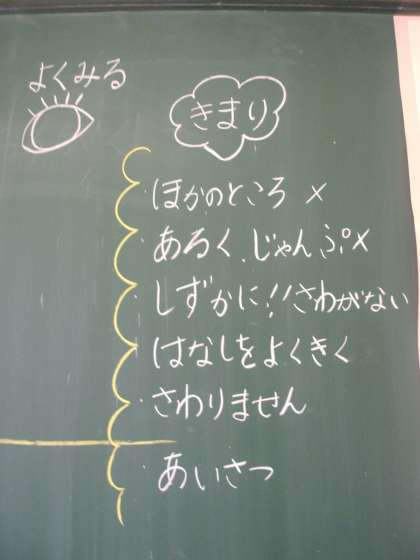 よくみる
きまり
・ほかのところ ×
・あるく、じゃんぷ×
・しずかに!!さわがない
・はなしをよくきく
・さわりません
・あいさつ